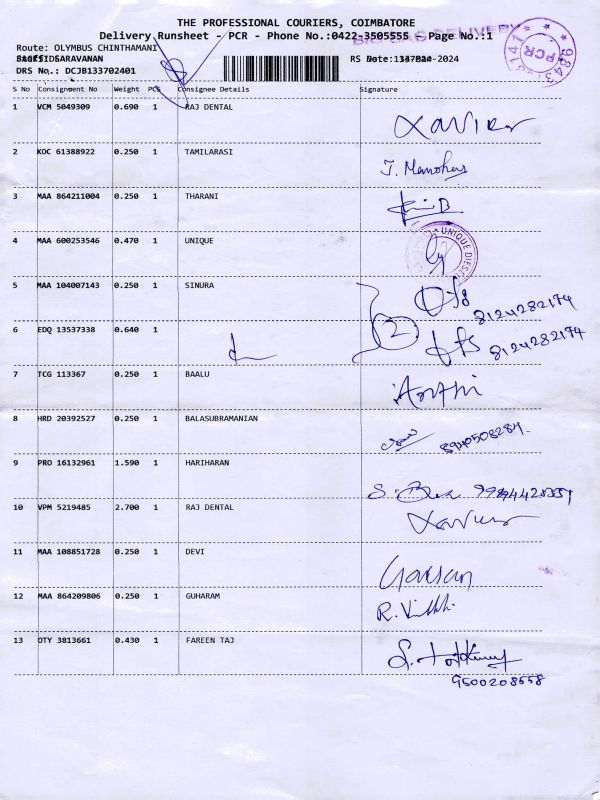 THE PROFESSIONAL COURIERS, COIMBATORE
Delivery Runsheet - PCR - Phone No.:0422-3505555 Page No.:1
Route: OLYMBUS CHINTHAMANI
SARAVANAN
DRS No.: DCJB133702401
S No Consignment No Weight PCS Consignee Details Signature
1 VCM 5049309 0.690 1 RAJ DENTAL Xavier
2 KOC 61388922 0.250 1 TAMILARASI J. Manohar
3 MAA 864211004 0.250 1 THARANI
4 MAA 600253546 0.470 1 UNIQUE
5 MAA 104007143 0.250 1 SINURA 8124282174
2
6 EDQ 13537338 0.640 1 8124282174
7 TCG 113367 0.250 1 BAALU Arthi
8 HRD 20392527 0.250 1 BALASUBRAMANIAN
9 PRO 16132961 1.590 1 HARIHARAN
10 VPM 5219485 2.700 1 RAJ DENTAL Xavier
11 MAA 108851728 0.250 1 DEVI
12 MAA 864209806 0.250 1 GUHARAM
13 OTY 3813661 0.430 1 FAREEN TAJ
9500208558